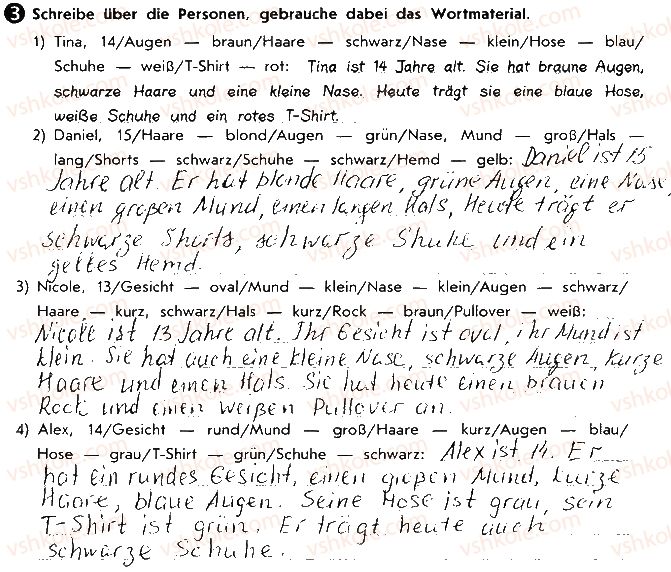 3 Schreibe über die Personen, gebrauche dabei das Wortmaterial.
1) Tina, 14/Augen — braun/Haare — schwarz/Nase — klein/Hose — blau/
Schuhe — weiß/T-Shirt — rot: Tina ist 14 Jahre alt. Sie hat braune Augen,
schwarze Haare und eine kleine Nase. Heute trägt sie eine blaue Hose,
weiße Schuhe und ein rotes T-Shirt.
2) Daniel, 15/Haare — blond/Augen — grün/Nase, Mund — groß/Hals —
lang/Shorts — schwarz/Schuhe — schwarz/Hemd — gelb: Daniel ist 15
Jahre alt. Er hat blonde Haare, grüne Augen, eine Nase,
einen großen Mund, einen langen Hals, Heute trägt er
schwarze Shorts, schwarze Shuhe und ein
geltes Hemd.
3) Nicole, 13/Gesicht — oval/Mund — klein/Nase — klein/Augen — schwarz/
Haare — kurz, schwarz/Hals — kurz/Rock — braun/Pullover — weiß:
Nicole ist 13 Jahre alt. Ihr Gesicht ist oval, ihr Mund ist
klein. Sie hat auch eine kleine Nase, schwarze Augen, kurze
Haare und einen Hals. Sie hat heute einen brauen
Rock und einen weißen Pullover an.
4) Alex, 14/Gesicht — rund/Mund — groß/Haare — kurz/Augen — blau/
Hose — grau/T-Shirt — grün/Schuhe — schwarz: Alex ist 14. Er
hat ein rundes Gesicht, einen großen Mund, kurze
Haare, blaue Augen. Seine Hose ist grau, sein
T-Shirt ist grün. Er trägt heute auch
schwarze Schuhe.